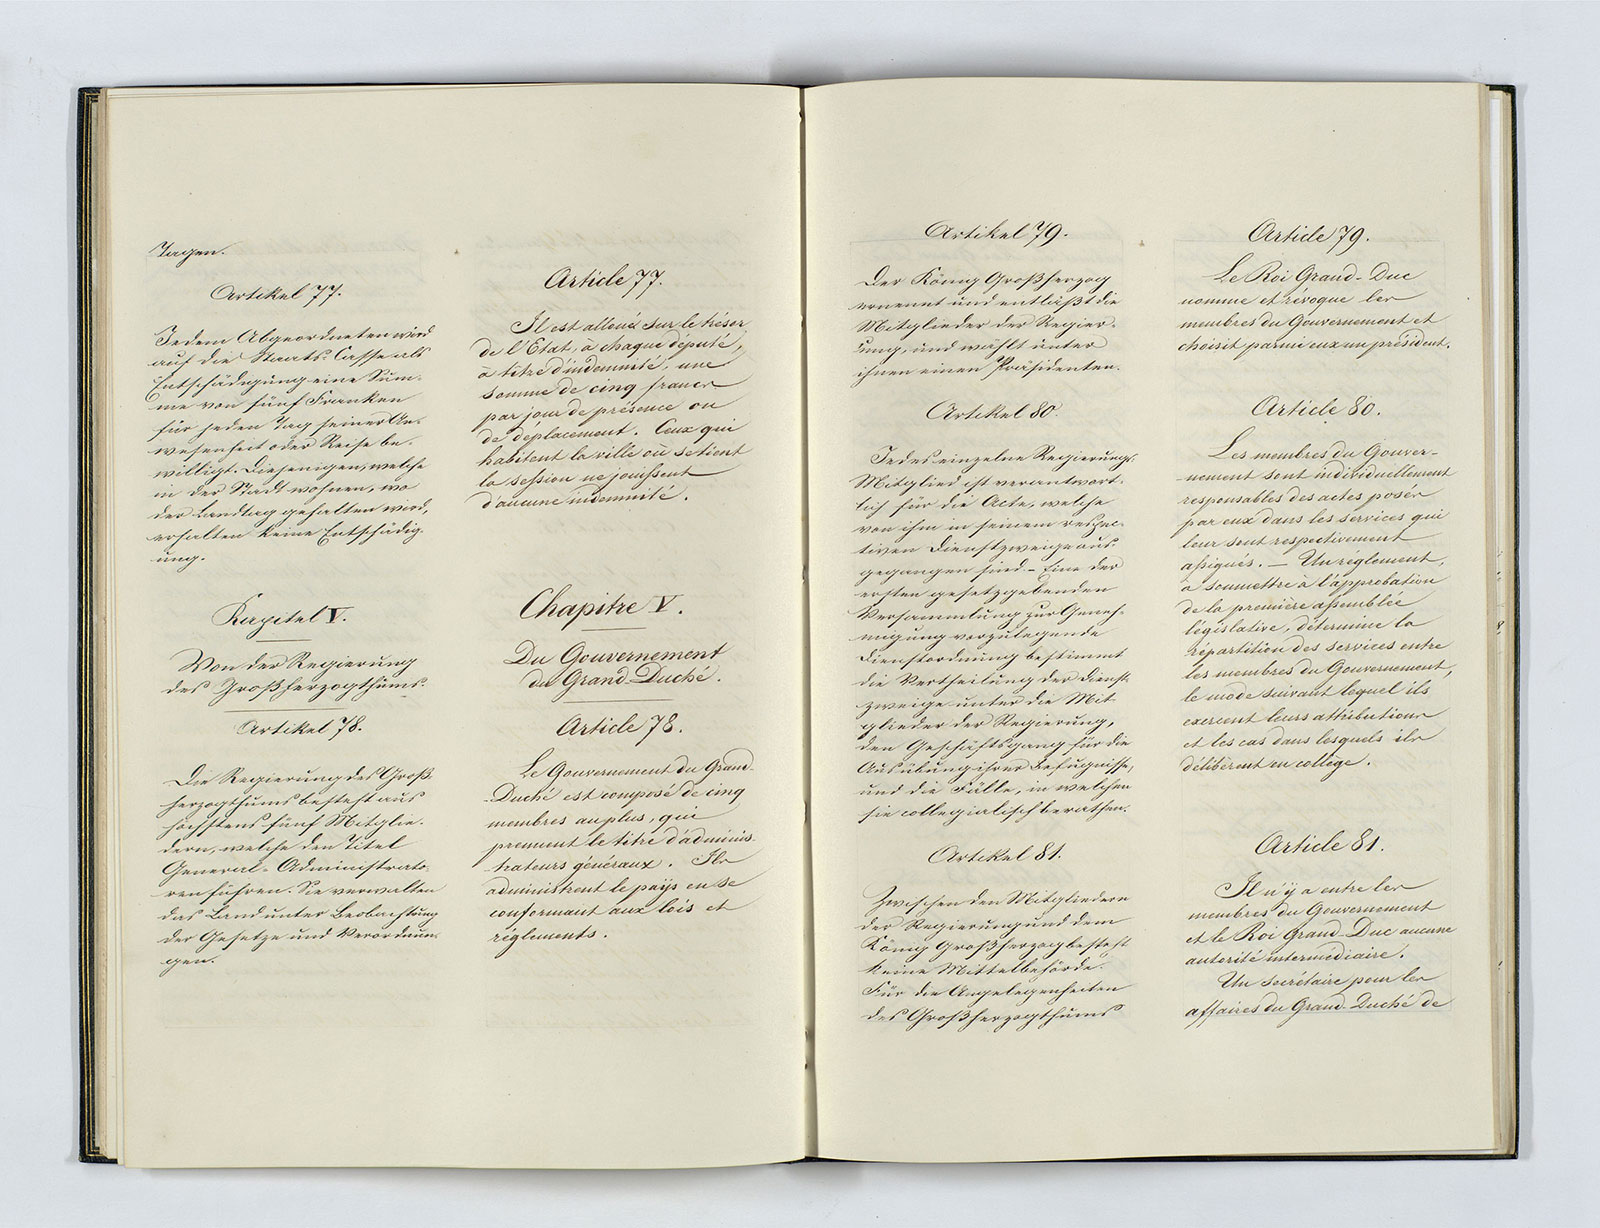 Tagen.
Artikel 77.
Jedem Abgeordneten wird
auf die Staats-Casse als
Entschädigung eine Sum-
me von fünf Franken
für jeden Tag seiner An-
wesenheit oder Reise be-
willigt. Diejenigen, welche
in der Stadt wohnen, wo
der Landtag gehalten wird,
erhalten keine Entschädig-
ung.
Kapitel V.
Von der Regierung
des Großherzogthums.
Artikel 78.
Die Regierung des Groß-
herzogthums besteht aus
höchstens fünf Mitglie-
dern, welche den Titel
General-Administrato-
ren führen. Sie verwalten
das Land unter Beobachtung
der Gesetze und Verordnun-
gen.
Article 77.
Il est alloué sur le trésor
de l'Etat, à chaque député,
à titre d'indemnité, une
somme de cinq francs
par jour de présence ou
de déplacement. Ceux qui
habitent la ville où se tient
la session ne jouissent
d'aucune indemnité.
Chapitre V.
Du Gouvernement
du Grand-Duché.
Article 78.
Le Gouvernement du Grand-
-Duché est composé de cinq
membres au plus, qui
prennent le titre d'adminis
trateurs généraux. Ils
administrent le pays en se
conformant aux lois et
réglements.
Artikel 79.
Der König Großherzog
ernennt und entläßt die
Mitglieder der Regier-
ung, und wählt unter
ihnen einen Präsidenten.
Artikel 80.
Jedes einzelne Regierungs-
Mitglied ist verantwort-
lich für die Acte, welche
von ihm in seinem respec-
tiven Dienstzweige aus-
gegangen sind. – Eine der
ersten gesetzgebenden
Versammlung zur Geneh-
migung vorzulegende
Dienstordnung bestimmt
die Vertheilung der Dienst-
zweige unter die Mit
glieder der Regierung,
den Geschäftsgang für die
Ausübung ihrer Befugnisse,
und die Fälle, in welchen
sie collegialisch berathen.
Artikel 81.
Zwischen den Mitgliedern
der Regierung und dem
König Großherzog besteht
keine Mittelbehörde.
Für die Angelegenheiten
des Großherzogthums
Article 79.
Le Roi Grand-Duc
nomme et révoque les
membres du Gouvernement et
choisit parmi eux un président.
Article 80.
Les membres du Gouver-
-nement sont individuellement
responsables des actes posés
par eux dans les services qui
leur sont respectivement
assignés. – Un réglement,
à soumettre à l'approbation
de la première assemblée
législative, détermine la
répartition des services entre
les membres du Gouvernement,
le mode suivant lequel ils
exercent leurs attributions
et les cas dans lesquels ils
délibèrent en collège.
Article 81.
Il n'y a entre les
membres du Gouvernement
et le Roi Grand-Duc aucune
autorité intermédiaire.
Un secrétaire pour les
affaires du Grand-Duché de